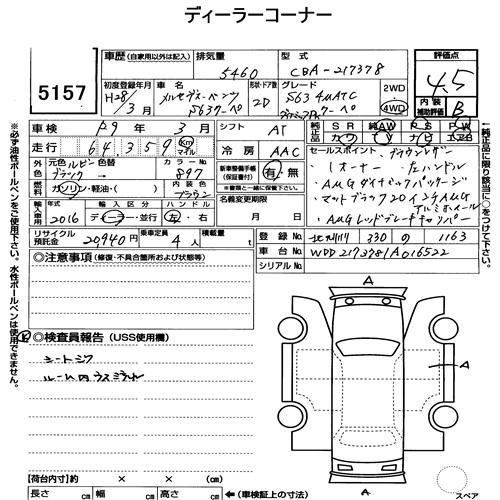 ディーラーコーナー
5157
車歴 (自家用以外は記入)
排気量 5460
型式 CBA-217378
評価点 4.5
初度登録年月 H28/3月
車名 メルセデス・ベンツ S63クーペ
形状・ドア数 2D
グレード S63 4MATIC クーペ
2WD
4WD
内装補助評価 B
車検 R9年3月
シフト AT
純正品 SR 純正AW PS PW
走行 64359 Km マイル
冷房 AAC
カワ TV ナビ エアB
外色 元色 ルビーブラック 色替
カラーNo. 897
新車整備手帳(保証書付) 有・無
※記録簿だけは無に○
燃料 ガソリン・軽油・( )
内装色 ブラウン
輸入車用 年式 2016 輸入車 ディーラー・並行 ハンドル 左・右
名義変更期限 月 日
リサイクル預託金 20,940円
乗車定員 4人
積載量 t
セールスポイント ブラウンレザー
1オーナー 左ハンドル
AMGダイナミックパッケージ
マットブラック20インチAMGアルミホイール
AMGレッドブレーキキャリパー
登録No. 330 の 1163
車台No. WDD2173781A016522
シリアルNo.
◎注意事項 (修復・不具合箇所および状態等)
◎検査員報告 (USS使用欄)
シートシワ
ルーム内ウスヨゴレ
A
A
A
スペア
【荷台内寸】 × × (cm)
長さ cm 幅 cm 高さ cm ←(車検証上の寸法)
※必ず油性ボールペンをご使用下さい。水性ボールペンは使用できません。
←純正品に限り該当に○をして下さい。